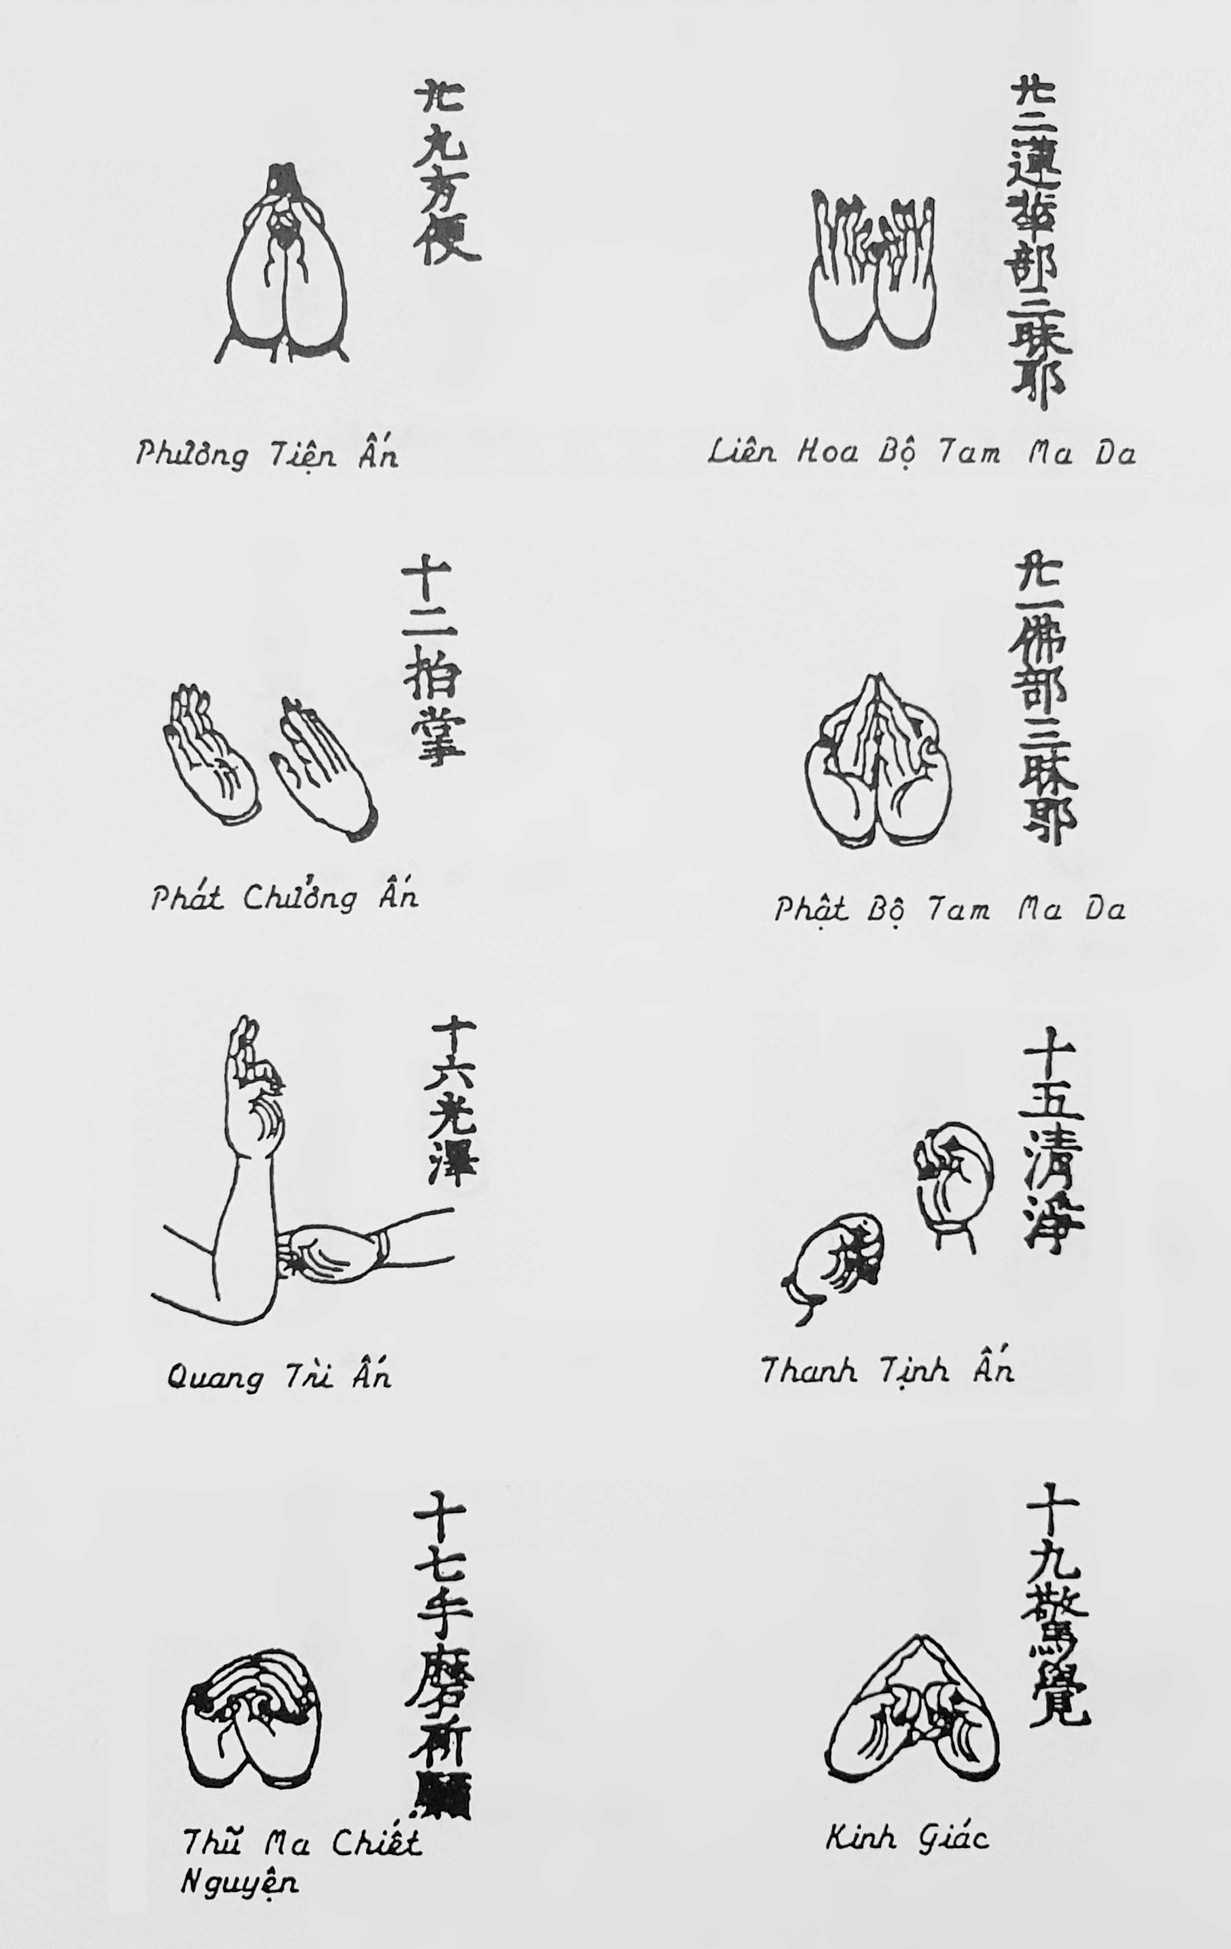 廿九方便
Phương Tiện Ấn
廿二蓮華部三昧耶
Liên Hoa Bộ Tam Ma Da
十二拍掌
Phát Chưởng Ấn
廿一佛部三昧耶
Phật Bộ Tam Ma Da
十六光澤
Quang Trì Ấn
十五清淨
Thanh Tịnh Ấn
十七手磨
Thũ Ma Chiết
Nguyện
十九驚覺
Kinh Giác